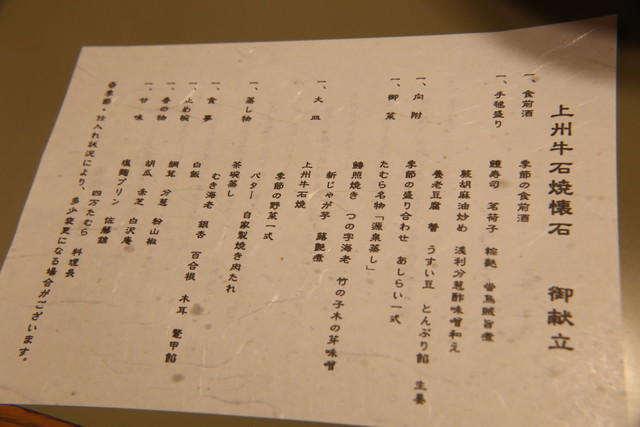 上州牛石焼懐石　御献立
一、食前酒　季節の食前酒
一、手毬盛り　鱒寿司　茗荷子　粽麩　蛍烏賊旨煮
蕨胡麻油炒め　浅利分葱酢味噌和え
養老豆腐　うすい豆　とんぶり餡　生姜
一、向附　季節の盛り合わせ　あしらい一式
一、御菜　たむら名物「源泉蒸し」
鱒照焼き　つの字海老　竹の子木の芽味噌
新じゃが芋　蕗艶煮
一、大皿　上州牛石焼
季節の野菜一式
バター　自家製焼き肉たれ
一、蒸し物　茶碗蒸し
むき海老　銀杏　百合根　木耳　鼈甲餡
一、食事　白飯
一、止め椀　鯛茸　分葱　粉山椒
一、香の物　胡瓜　赤芝　白沢庵
一、甘味　塩麹プリン　佐藤錦
四万たむら　料理長
◎季節・仕入れ状況により、多少変更になる場合がございます。